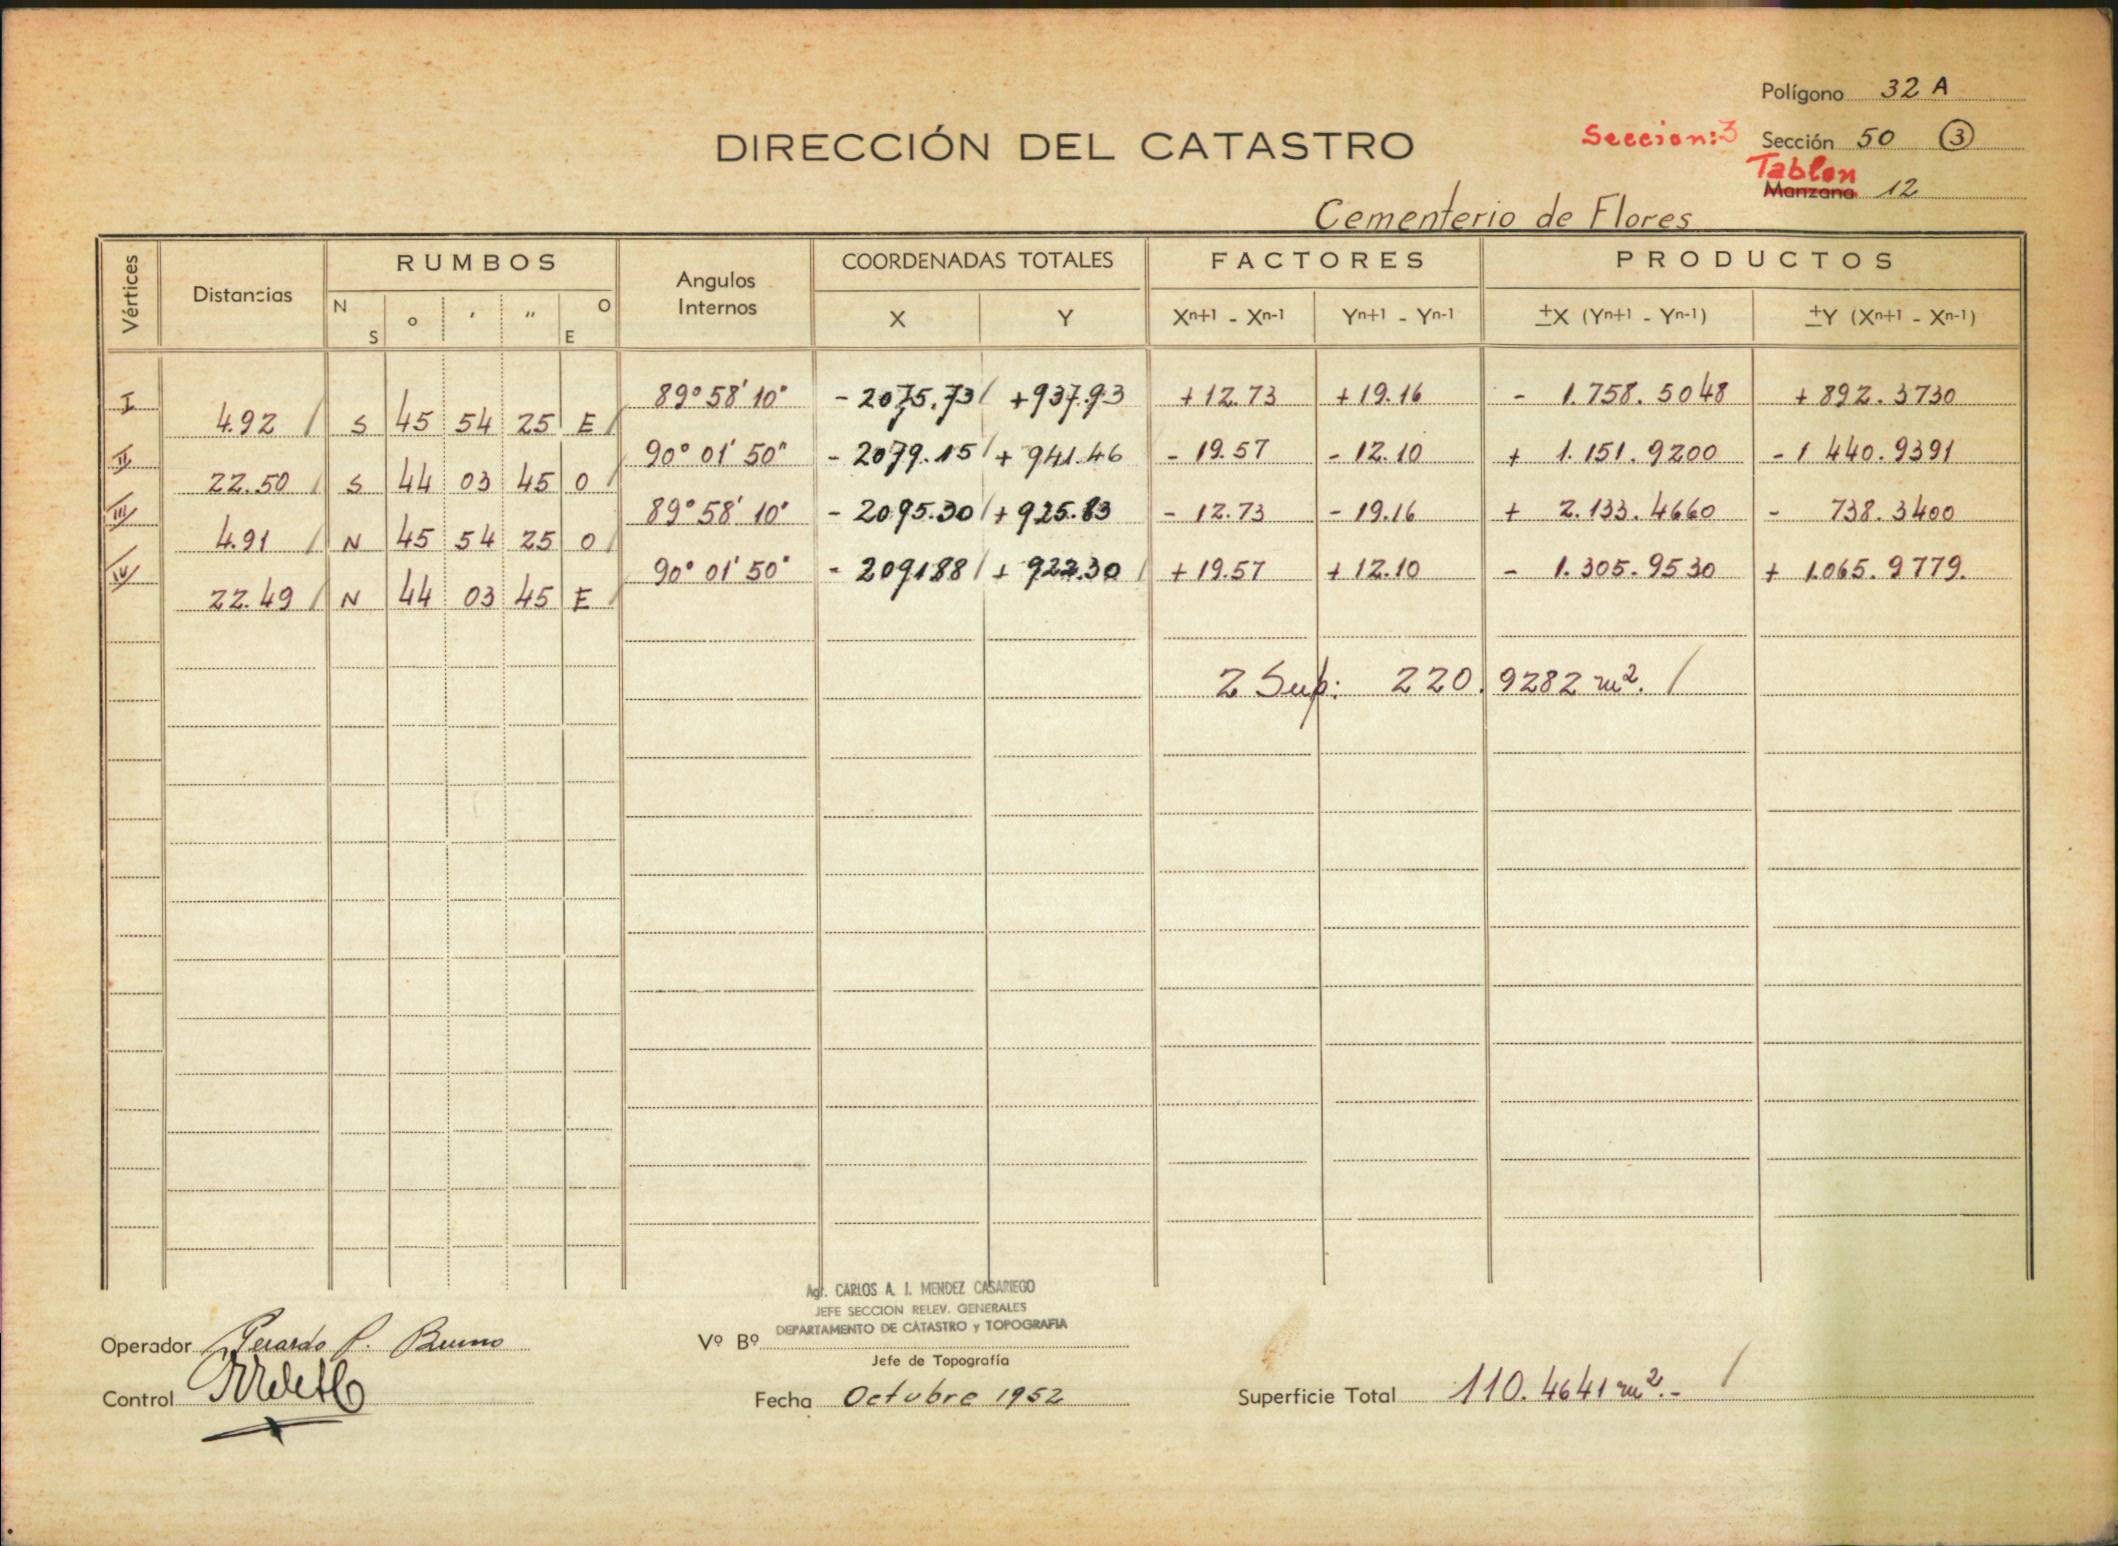 Polígono 32 A
DIRECCIÓN DEL CATASTRO
Seccion: 3 Sección 50 (3)
Tablon
Manzana 12
Cementerio de Flores
Vértices Distancias RUMBOS Angulos Internos COORDENADAS TOTALES FACTORES PRODUCTOS
N S o ' " O E X Y Xn+1 - Xn-1 Yn+1 - Yn-1 ±X (Yn+1 - Yn-1) ±Y (Xn+1 - Xn-1)
I 89° 58' 10" - 2075.73 / + 937.93 + 12.73 + 19.16 - 1.758.5048 + 892.3730
4.92 / S 45 54 25 E /
II 90° 01' 50" - 2079.15 / + 941.46 - 19.57 - 12.10 + 1.151.9200 - 1 440.9391
22.50 / S 44 03 45 O /
III 89° 58' 10" - 2095.30 / + 925.83 - 12.73 - 19.16 + 2.133.4660 - 738.3400
4.91 / N 45 54 25 O /
IV 90° 01' 50" - 209188 / + 922.30 / + 19.57 + 12.10 - 1.305.9530 + 1.065.9779.
22.49 / N 44 03 45 E /
2 Sup: 220.9282 m². /
Agr. CARLOS A. I. MENDEZ CASARIEGO
JEFE SECCION RELEV. GENERALES
DEPARTAMENTO DE CATASTRO y TOPOGRAFIA
Operador Gerardo P. Bruno Vº Bº
Jefe de Topografía
Control Fecha Octubre 1952 Superficie Total 110.4641 m².- /